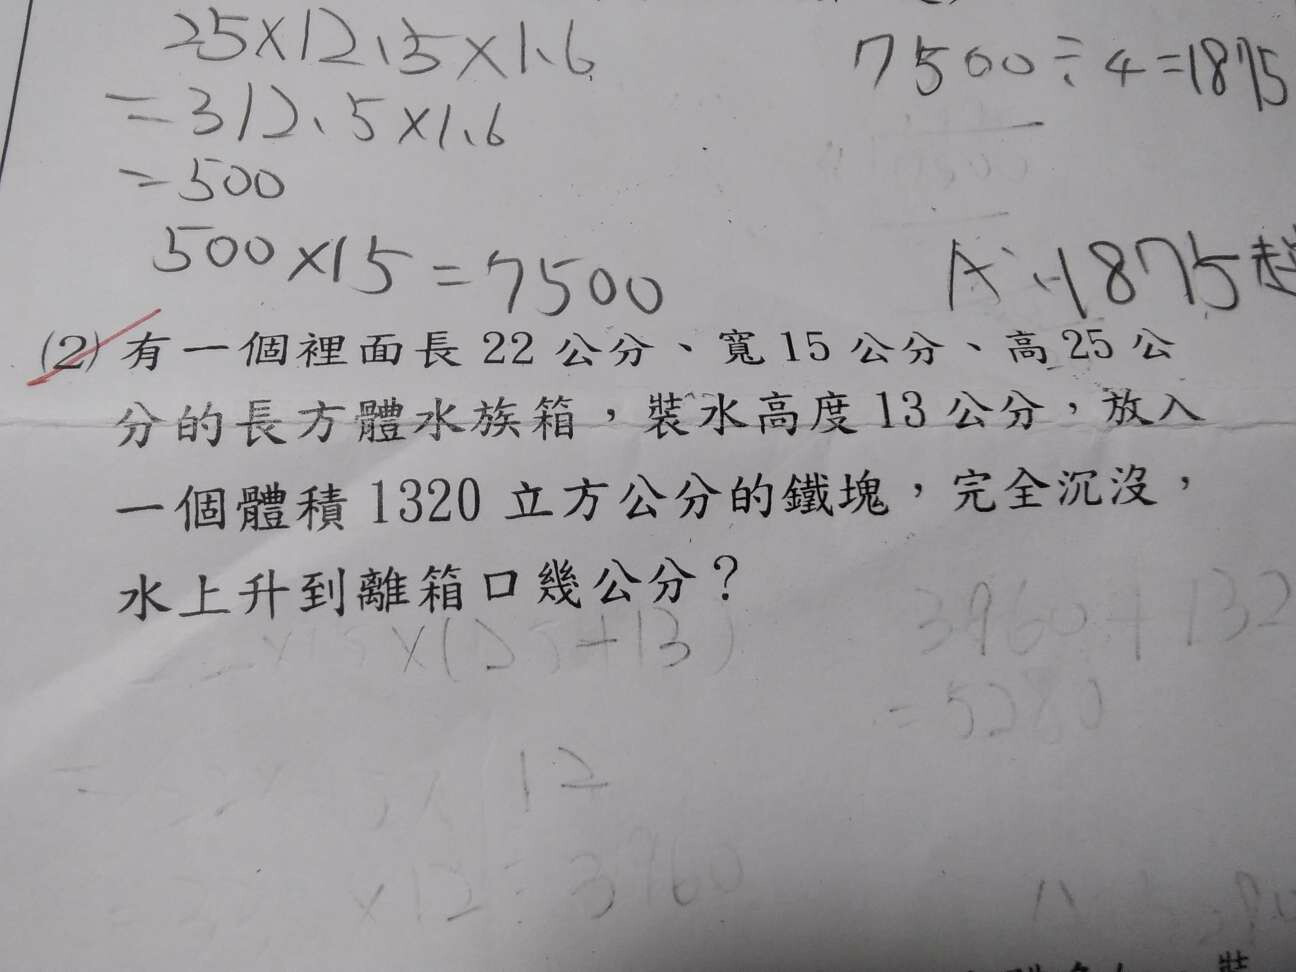 25×12.5×1.6
=312.5×1.6
=500
500×15=7500
7500÷4=1875
A:1875
(2) 有一個裡面長 22 公分、寬 15 公分、高 25 公
分的長方體水族箱，裝水高度 13 公分，放入
一個體積 1320 立方公分的鐵塊，完全沉沒，
水上升到離箱口幾公分？
×15×(25+13)
12
×12=3960
3960+132
=5280